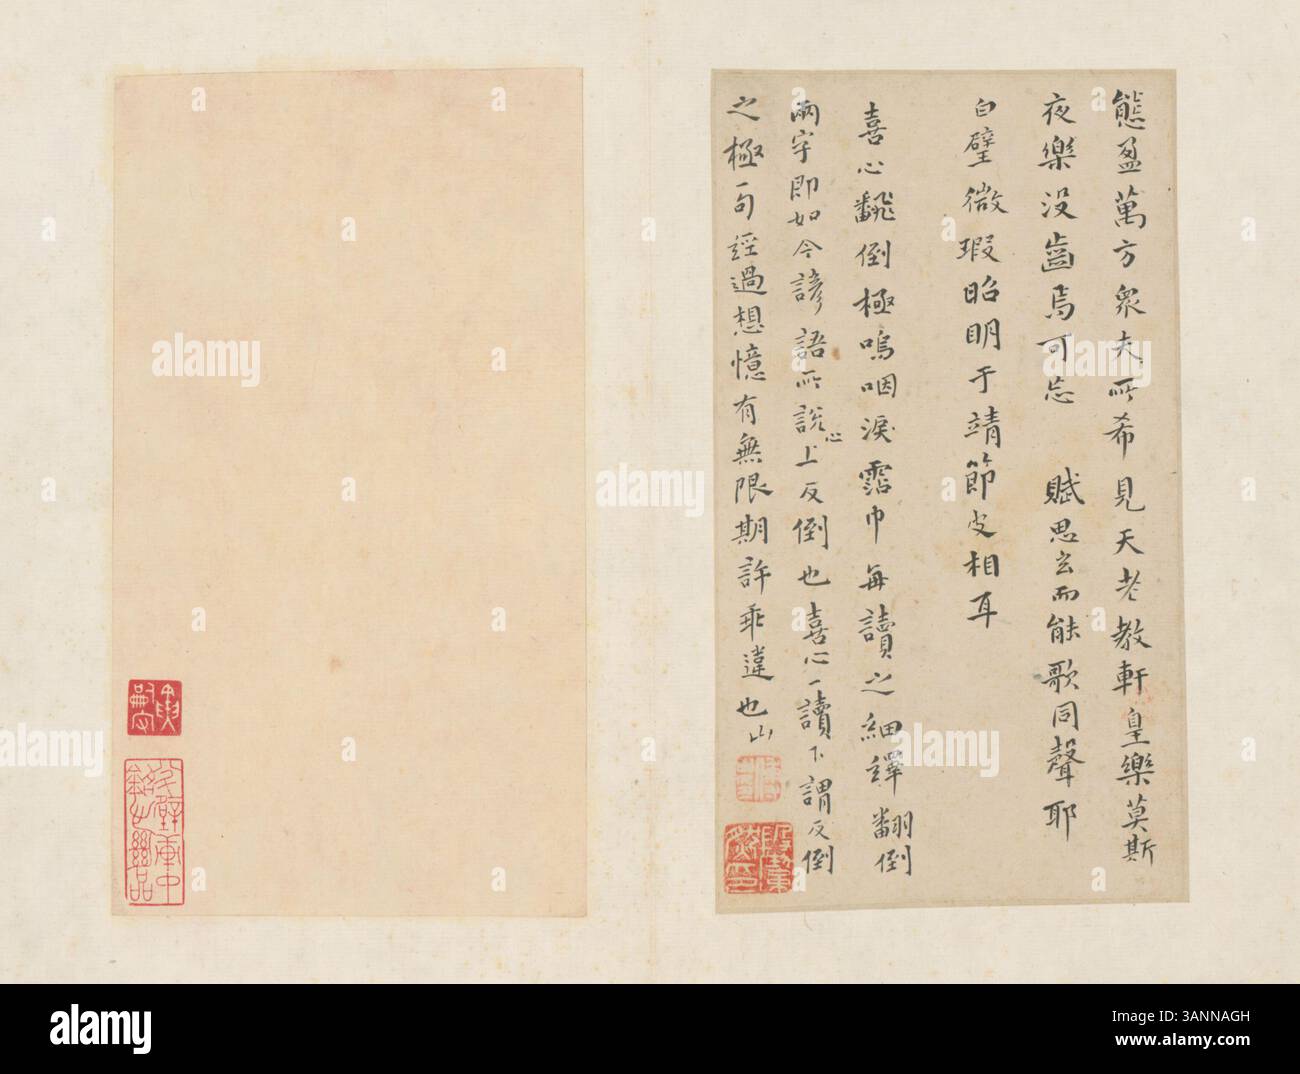 態盈萬方衆夫所希見天老教軒皇樂莫斯
夜樂没齒焉可忘 賦思玄而能歌同聲耶
白璧微瑕昭明于靖節皮相耳
喜心翻倒極嗚咽淚霑巾每讀之細繹翻倒
兩字即如今諺語所説心上反倒也喜心一讀下謂反倒
之極一句經過想憶有無限期許乖違也山
alamy
Image ID: 3ANNAGH
www.alamy.com